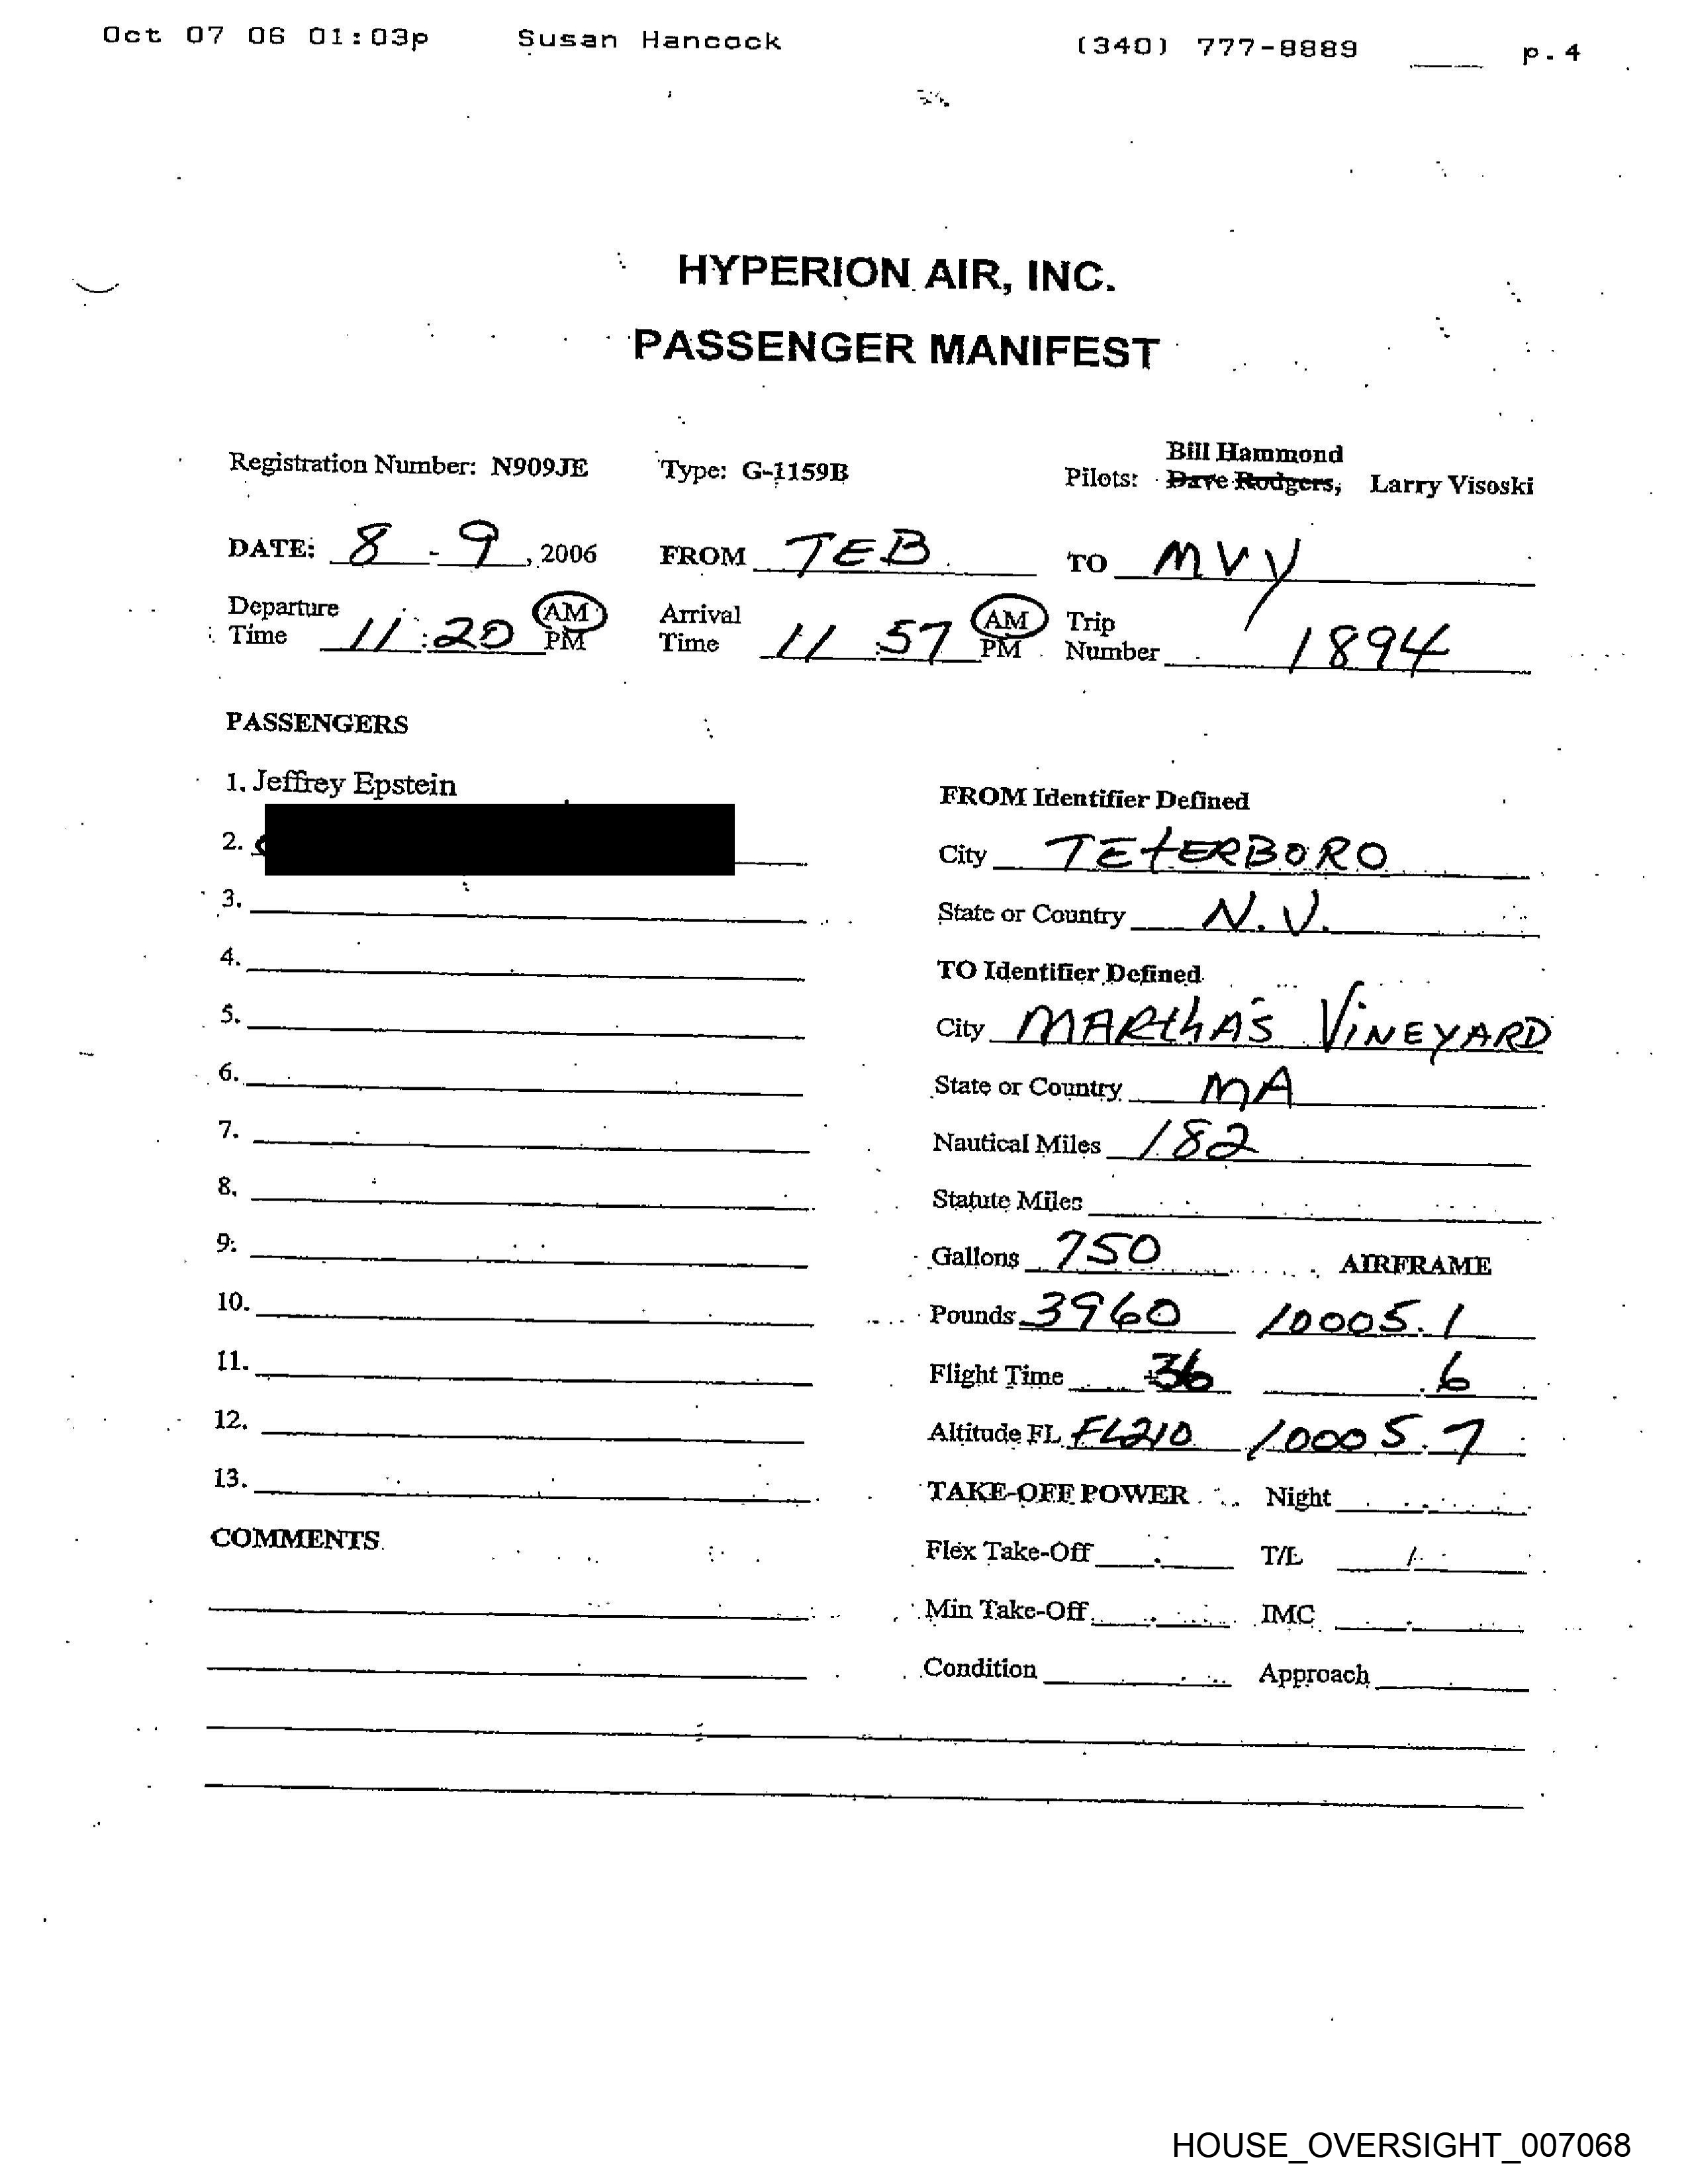 Oct 07 06 01:03p Susan Hancock (340) 777-8889 p.4
HYPERION AIR, INC.
PASSENGER MANIFEST
Bill Hammond
Registration Number: N909JE Type: G-1159B Pilots: Dave Rodgers, Larry Visoski
DATE: 8 - 9, 2006 FROM TEB TO MVY
Departure Time 11:20 AM PM Arrival Time 11:57 AM PM Trip Number 1894
PASSENGERS
1. Jeffrey Epstein
FROM Identifier Defined
2.
City TETERBORO
3.
State or Country N.J.
4.
TO Identifier Defined
5.
City MARTHA'S VINEYARD
6.
State or Country MA
7.
Nautical Miles 182
8.
Statute Miles
9.
Gallons 750 AIRFRAME
10.
Pounds 3960 10005.1
11.
Flight Time 36 .6
12.
Altitude FL FL210 10005.7
13.
TAKE-OFF POWER Night
COMMENTS
Flex Take-Off T/L /
Min Take-Off IMC
Condition Approach
HOUSE_OVERSIGHT_007068